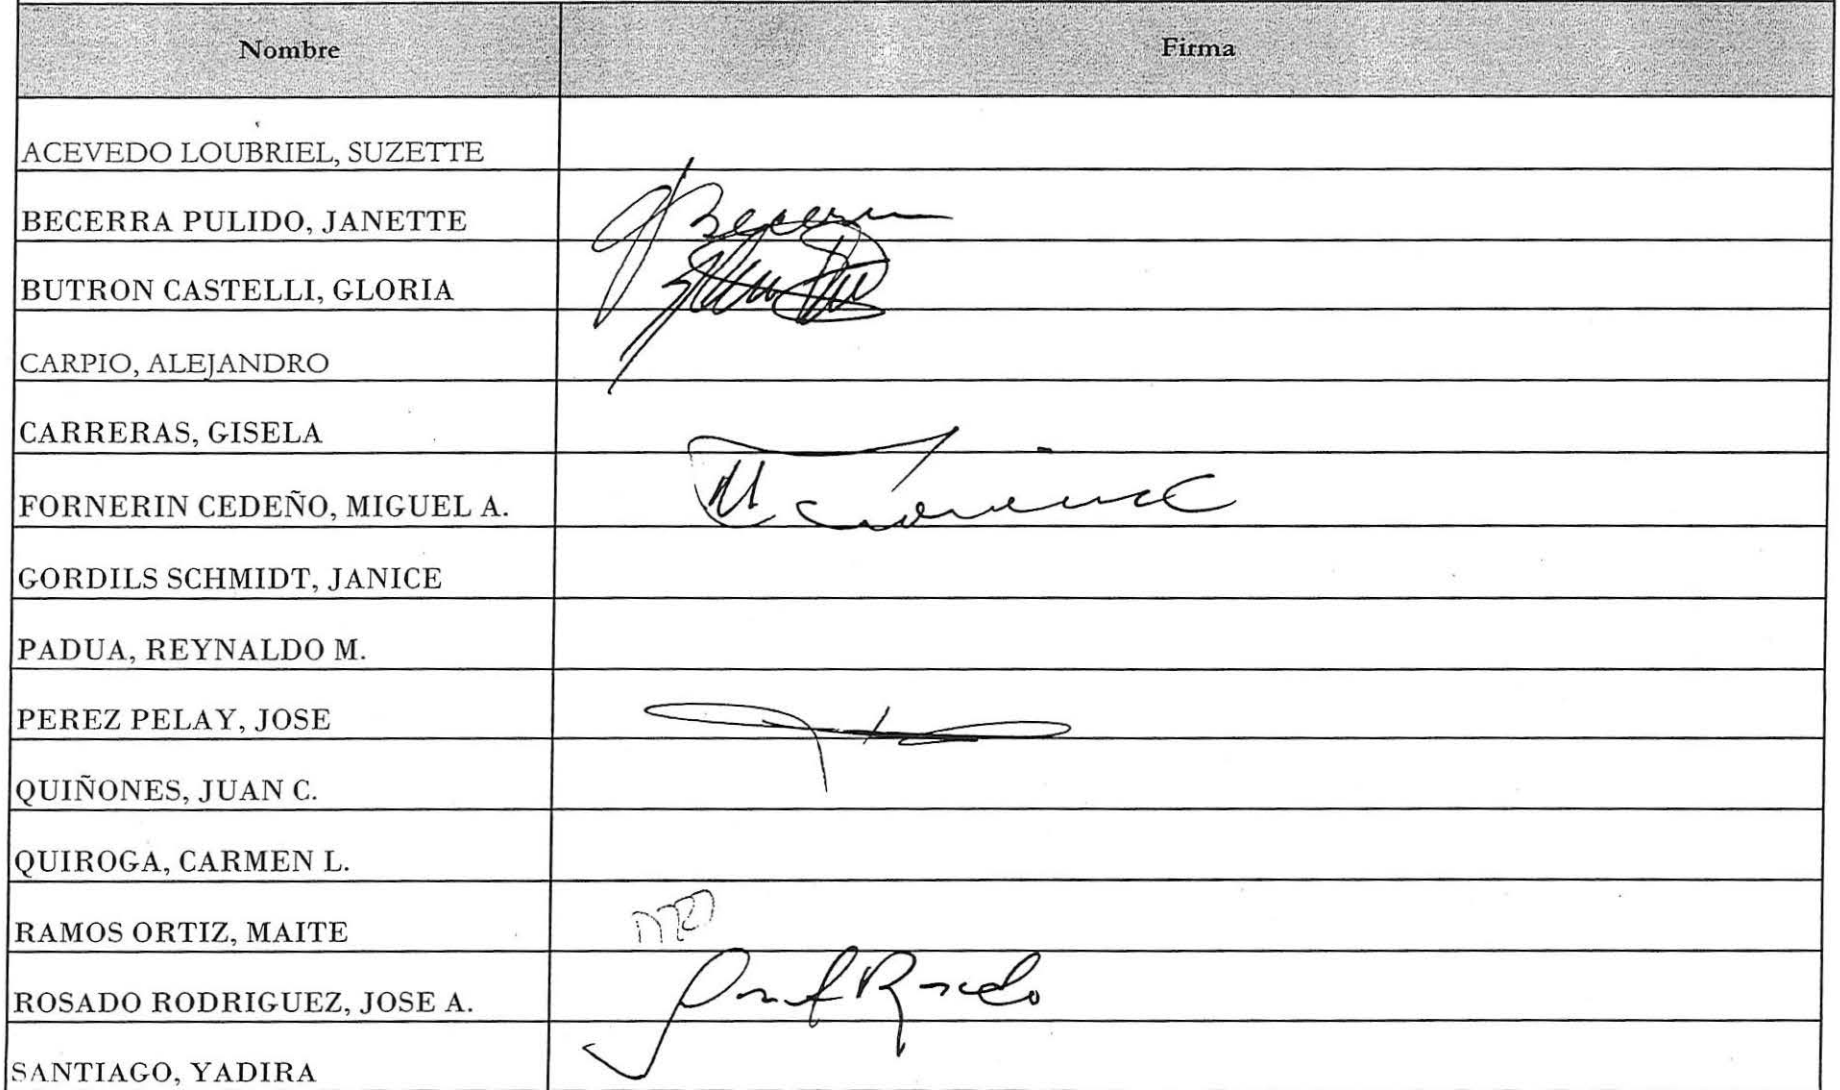 Nombre Firma
ACEVEDO LOUBRIEL, SUZETTE
BECERRA PULIDO, JANETTE Becerra
BUTRON CASTELLI, GLORIA
CARPIO, ALEJANDRO
CARRERAS, GISELA
FORNERIN CEDEÑO, MIGUEL A.
GORDILS SCHMIDT, JANICE
PADUA, REYNALDO M.
PEREZ PELAY, JOSE
QUIÑONES, JUAN C.
QUIROGA, CARMEN L.
RAMOS ORTIZ, MAITE MRO
ROSADO RODRIGUEZ, JOSE A. José Rosado
SANTIAGO, YADIRA